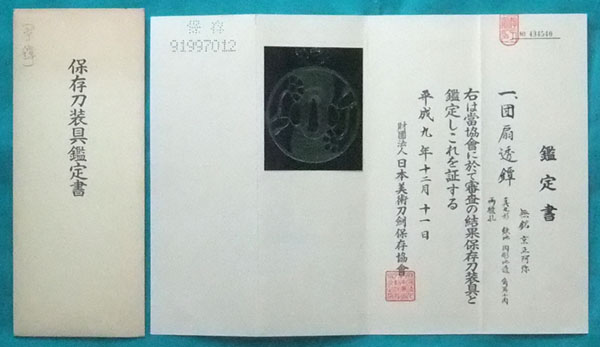 保存刀装具鑑定書
保存
91997012
№ 434546
鑑定書
一、団扇透鐔
無銘 京正阿弥
両櫃孔
右は當協會に於て審査の結果保存刀装具と
鑑定しこれを証する
平成九年十二月十一日
財團法人 日本美術刀剣保存協會